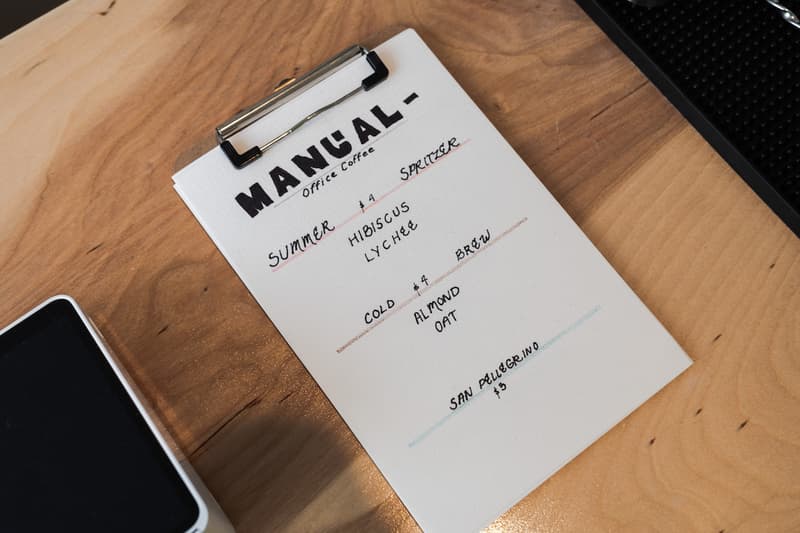 MANUAL-
Office Coffee
SUMMER $4 SPRITZER
HIBISCUS
LYCHEE
COLD $4 BREW
ALMOND
OAT
SAN PELLEGRINO
$3